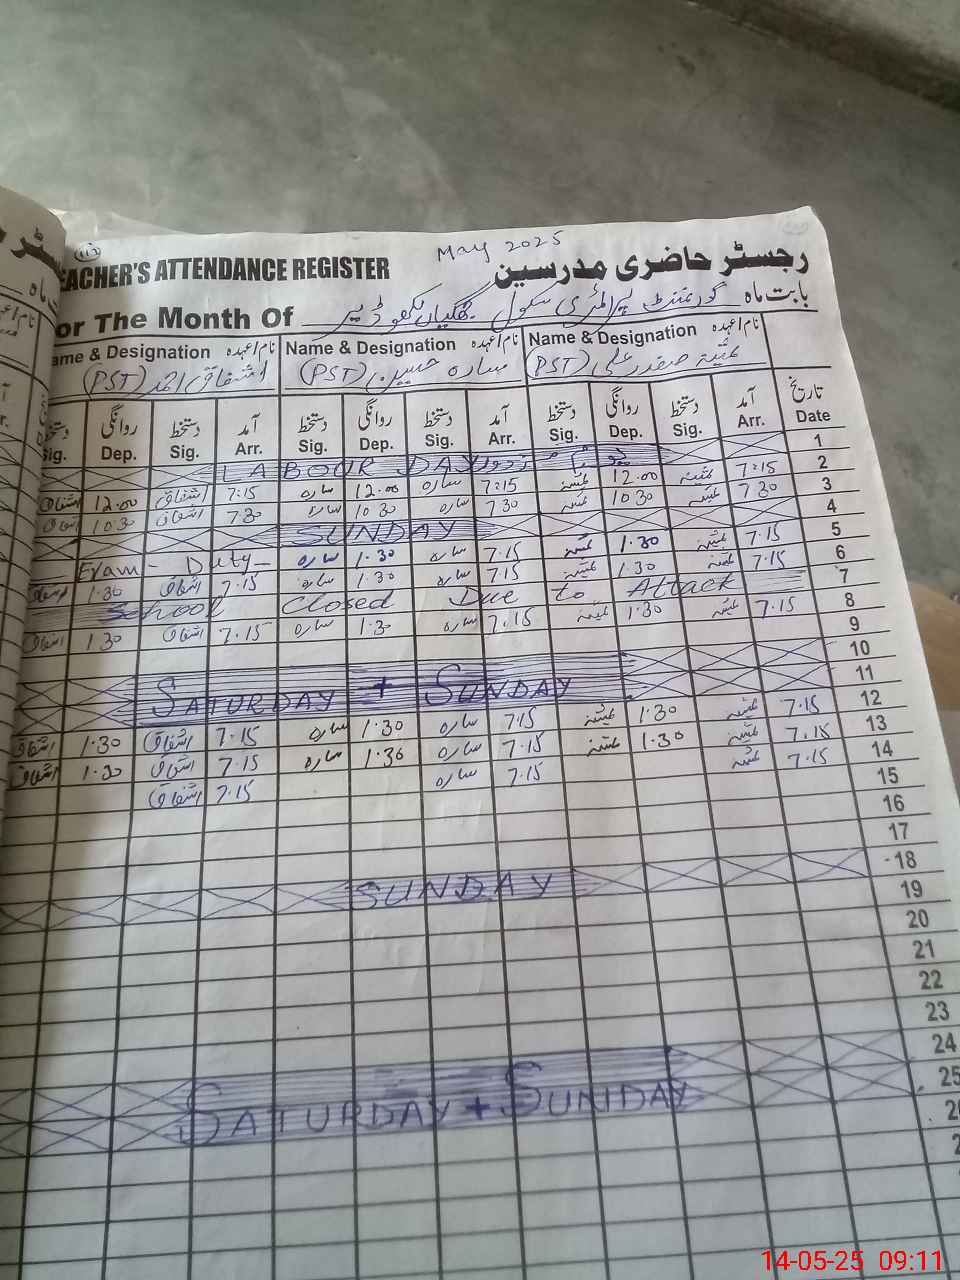 110
May 2025
TEACHER'S ATTENDANCE REGISTER رجسٹر حاضری مدرسین
For The Month Of گورنمنٹ پرائمری سکول بابت ماہ
Name & Designation نام/عہدہ Name & Designation نام/عہدہ Name & Designation نام/عہدہ
اشفاق احمد (PST) سارہ (PST) صفدر علی (PST)
دستخط روانگی دستخط آمد دستخط روانگی دستخط آمد دستخط روانگی دستخط آمد تاریخ
Sig. Dep. Sig. Arr. Sig. Dep. Sig. Arr. Sig. Dep. Sig. Arr. Date
LABOUR DAY یوم مزدور 1
اشفاق 12.00 اشفاق 7:15 سارہ 12.00 سارہ 7:15 12.00 7:15 2
اشفاق 10 30 اشفاق 7 30 سارہ 10 30 سارہ 7 30 10 30 7 30 3
SUNDAY 4
Exam - Duty - سارہ 1.30 سارہ 7.15 1.30 7.15 5
اشفاق 1.30 اشفاق 7.15 سارہ 1.30 سارہ 7.15 1.30 7.15 6
School Closed Due to Attack 7
اشفاق 1.30 اشفاق 7.15 سارہ 1.30 سارہ 7.15 1.30 7.15 8
9
10
SATURDAY + SUNDAY 11
اشفاق 1.30 اشفاق 7.15 سارہ 1.30 سارہ 7.15 1.30 7.15 12
اشفاق 1.30 اشفاق 7.15 سارہ 1.30 سارہ 7.15 1.30 7.15 13
اشفاق 7.15 سارہ 7.15 7.15 14
15
16
17
SUNDAY 18
19
20
21
22
23
24
SATURDAY + SUNDAY 25
14-05-25 09:11